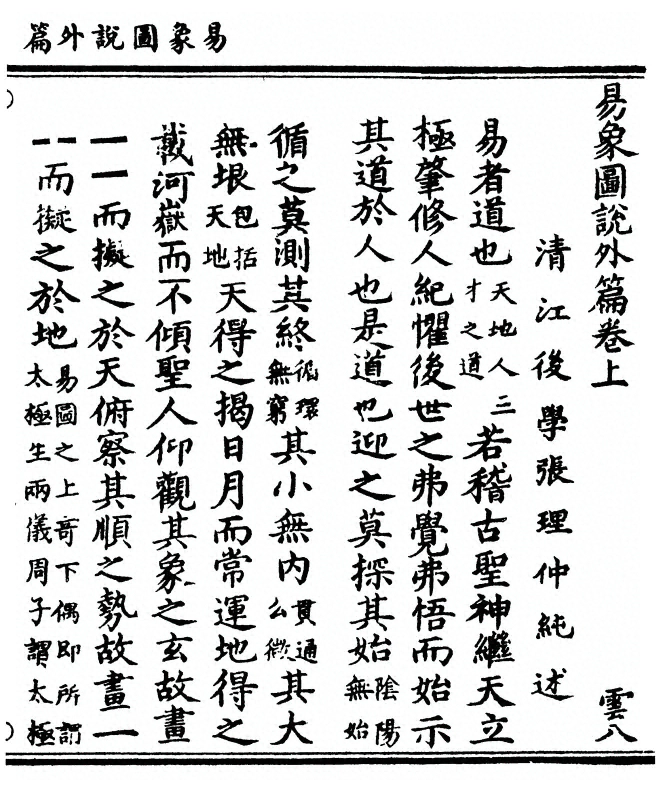 易象圖說外篇
易象圖說外篇卷上 雲八
清江後學張理仲純述
易者道也天地人三才之道若稽古聖神繼天立
極肇修人紀懼後世之弗覺弗悟而始示
其道於人也是道也迎之莫探其始陰陽無始
循之莫測其終循環無窮其小無內貫通公微其大
無垠包括天地天得之揭日月而常運地得之
載河嶽而不傾聖人仰觀其象之玄故畫
一一而擬之於天俯察其順之勢故畫一
一一而擬之於地易圖之上奇下偶即所謂太極生兩儀周子謂太極